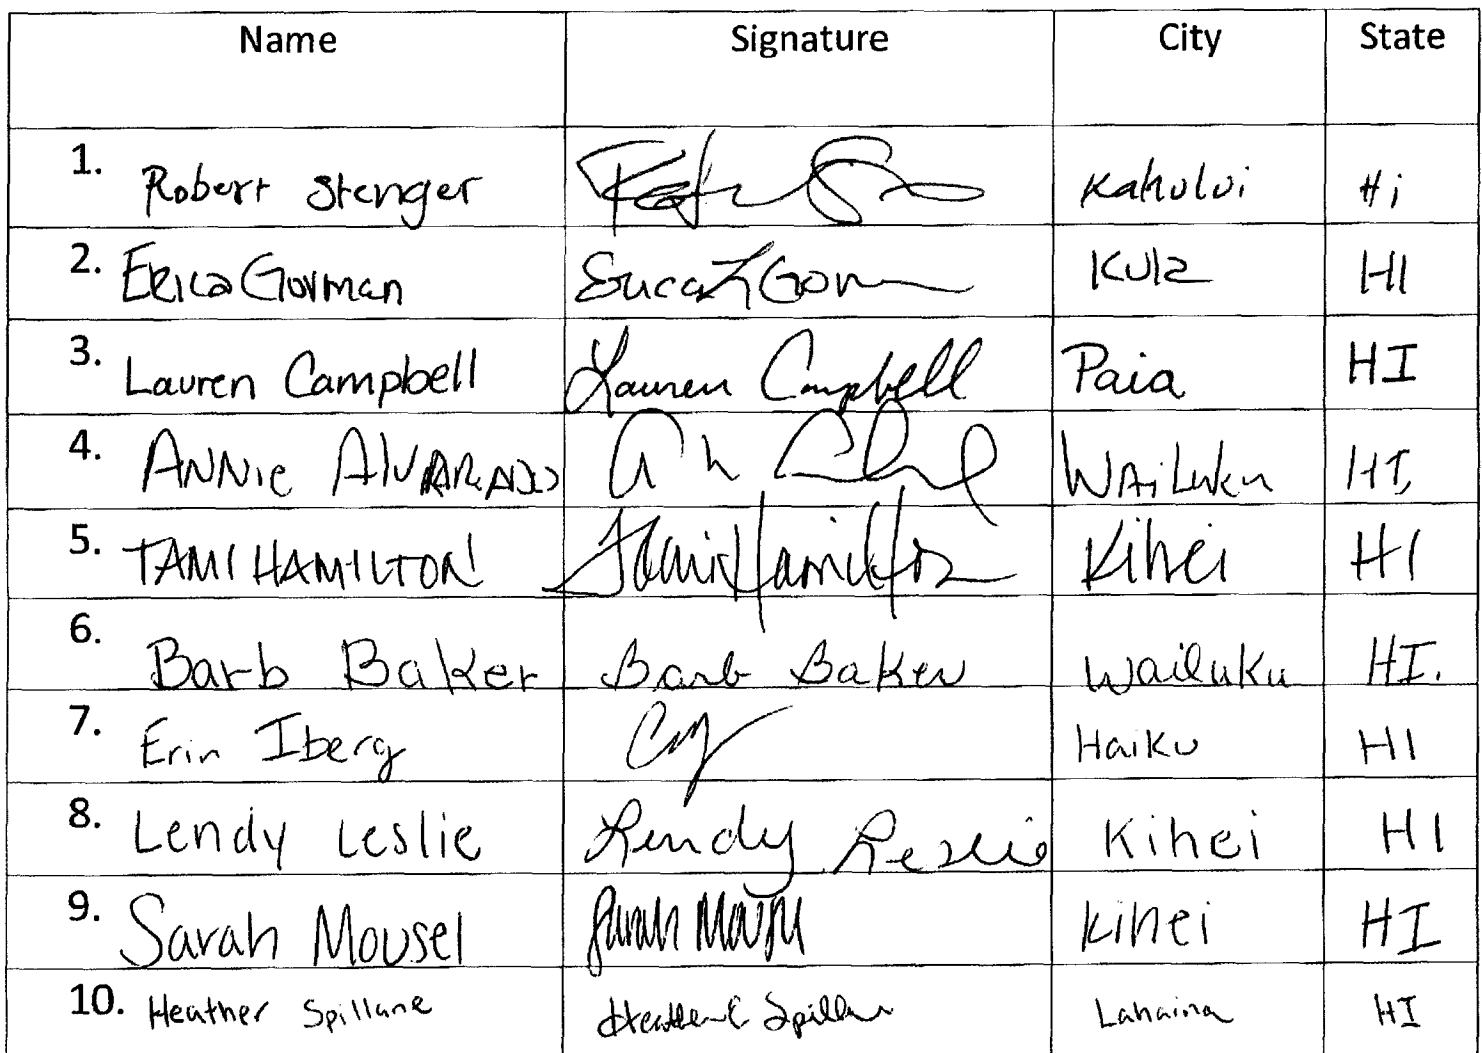 Name Signature City State
1. Robert Stenger Kahului Hi
2. Erica Gorman Erica L Gorman Kula HI
3. Lauren Campbell Lauren Campbell Paia HI
4. ANNie AlVARADO WAiLuku HI,
5. TAMI HAMILTON Tami Hamilton Kihei HI
6. Barb Baker Barb Baker Wailuku HI.
7. Erin Iberg Haiku HI
8. Lendy Leslie Lendy Leslie Kihei HI
9. Sarah Mousel Sarah Mousel Kihei HI
10. Heather Spillane Heather E Spillane Lahaina HI